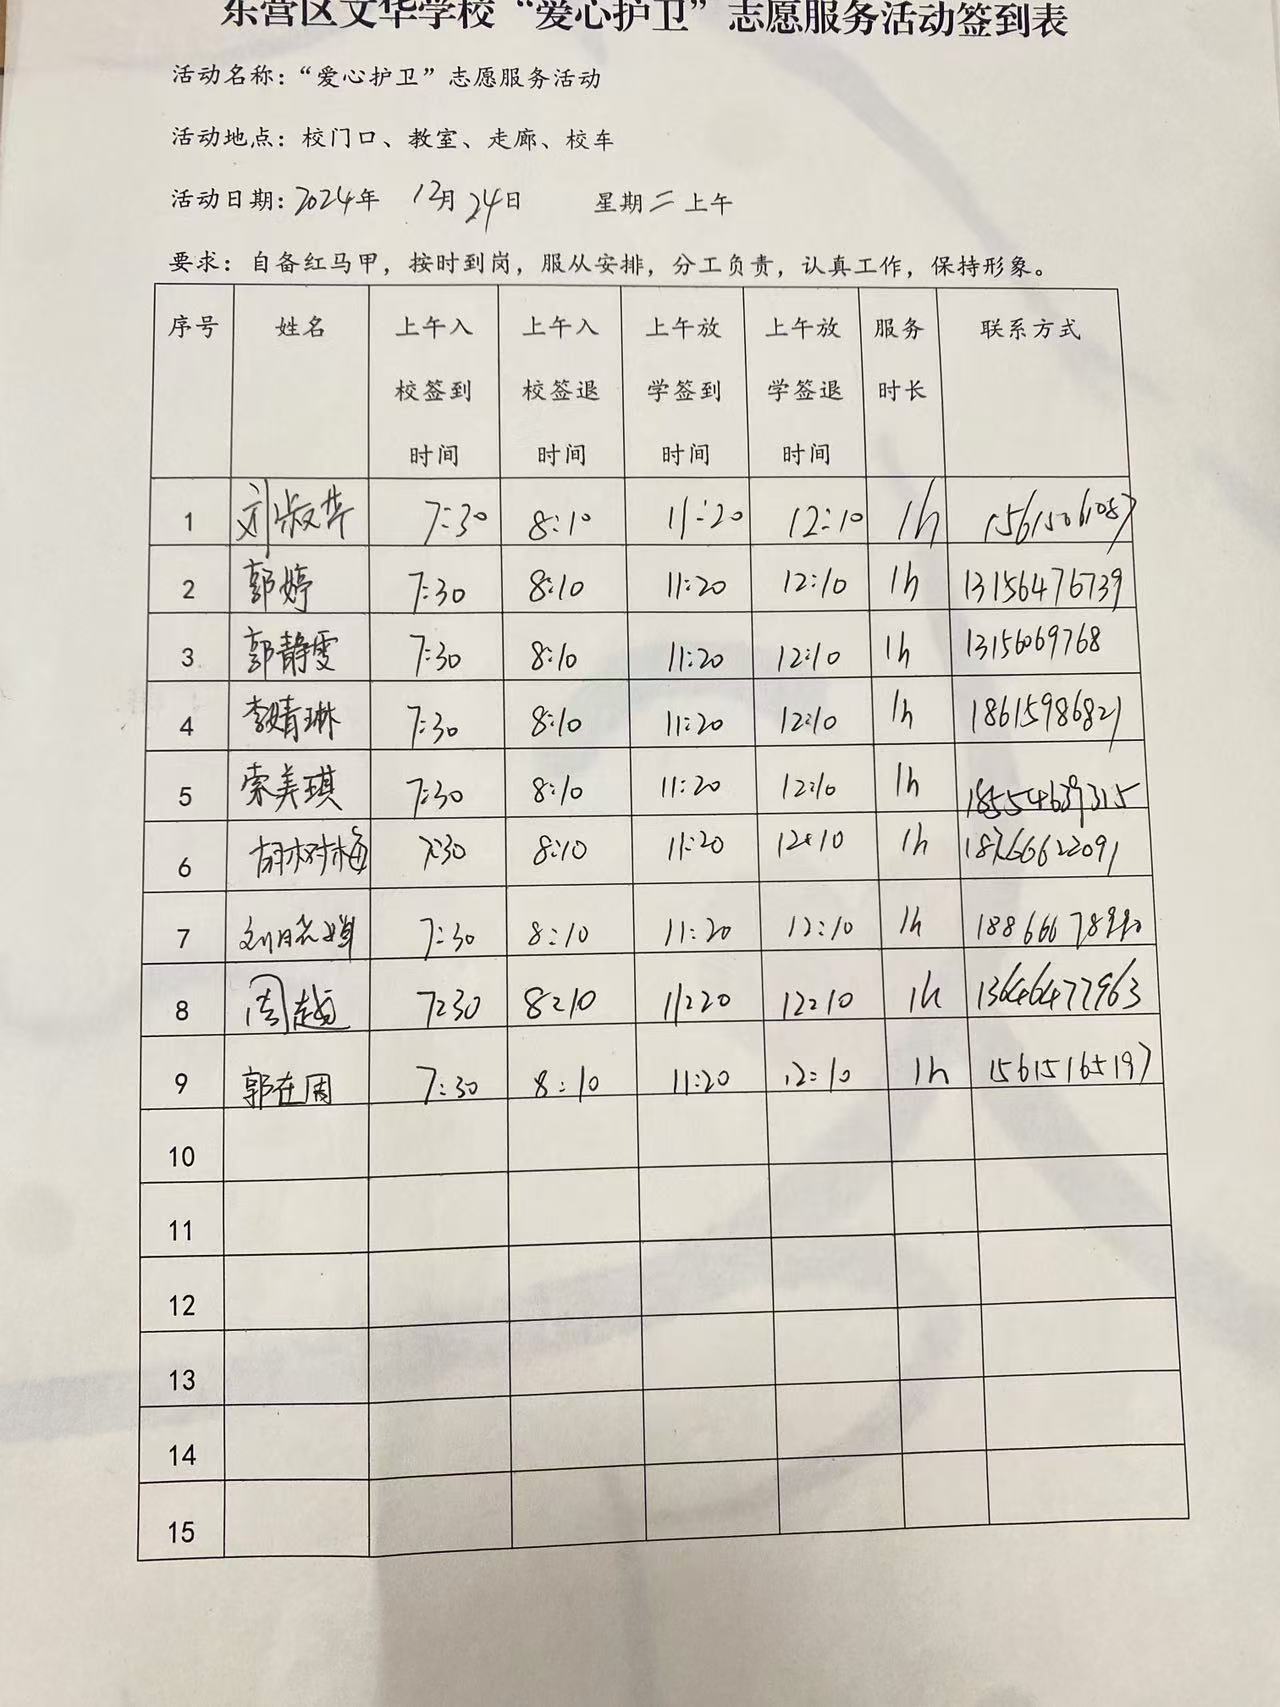 东营区文华学校“爱心护卫”志愿服务活动签到表
活动名称：“爱心护卫”志愿服务活动
活动地点：校门口、教室、走廊、校车
活动日期：2024年 12月24日 星期二上午
要求：自备红马甲，按时到岗，服从安排，分工负责，认真工作，保持形象。
序号 姓名 上午入校签到时间 上午入校签退时间 上午放学签到时间 上午放学签退时间 服务时长 联系方式
1 刘淑华 7:30 8:10 11:20 12:10 1h 15615061087
2 郭婷 7:30 8:10 11:20 12:10 1h 13156476739
3 郭静雯 7:30 8:10 11:20 12:10 1h 13156069768
4 李婧琳 7:30 8:10 11:20 12:10 1h 18615986821
5 索美琪 7:30 8:10 11:20 12:10 1h 18554639315
6 胡树梅 7:30 8:10 11:20 12:10 1h 18766622091
7 刘晓婵 7:30 8:10 11:20 12:10 1h
8 周越 7:30 8:10 11:20 12:10 1h 13646477963
9 郭在周 7:30 8:10 11:20 12:10 1h 15615165197
10
11
12
13
14
15